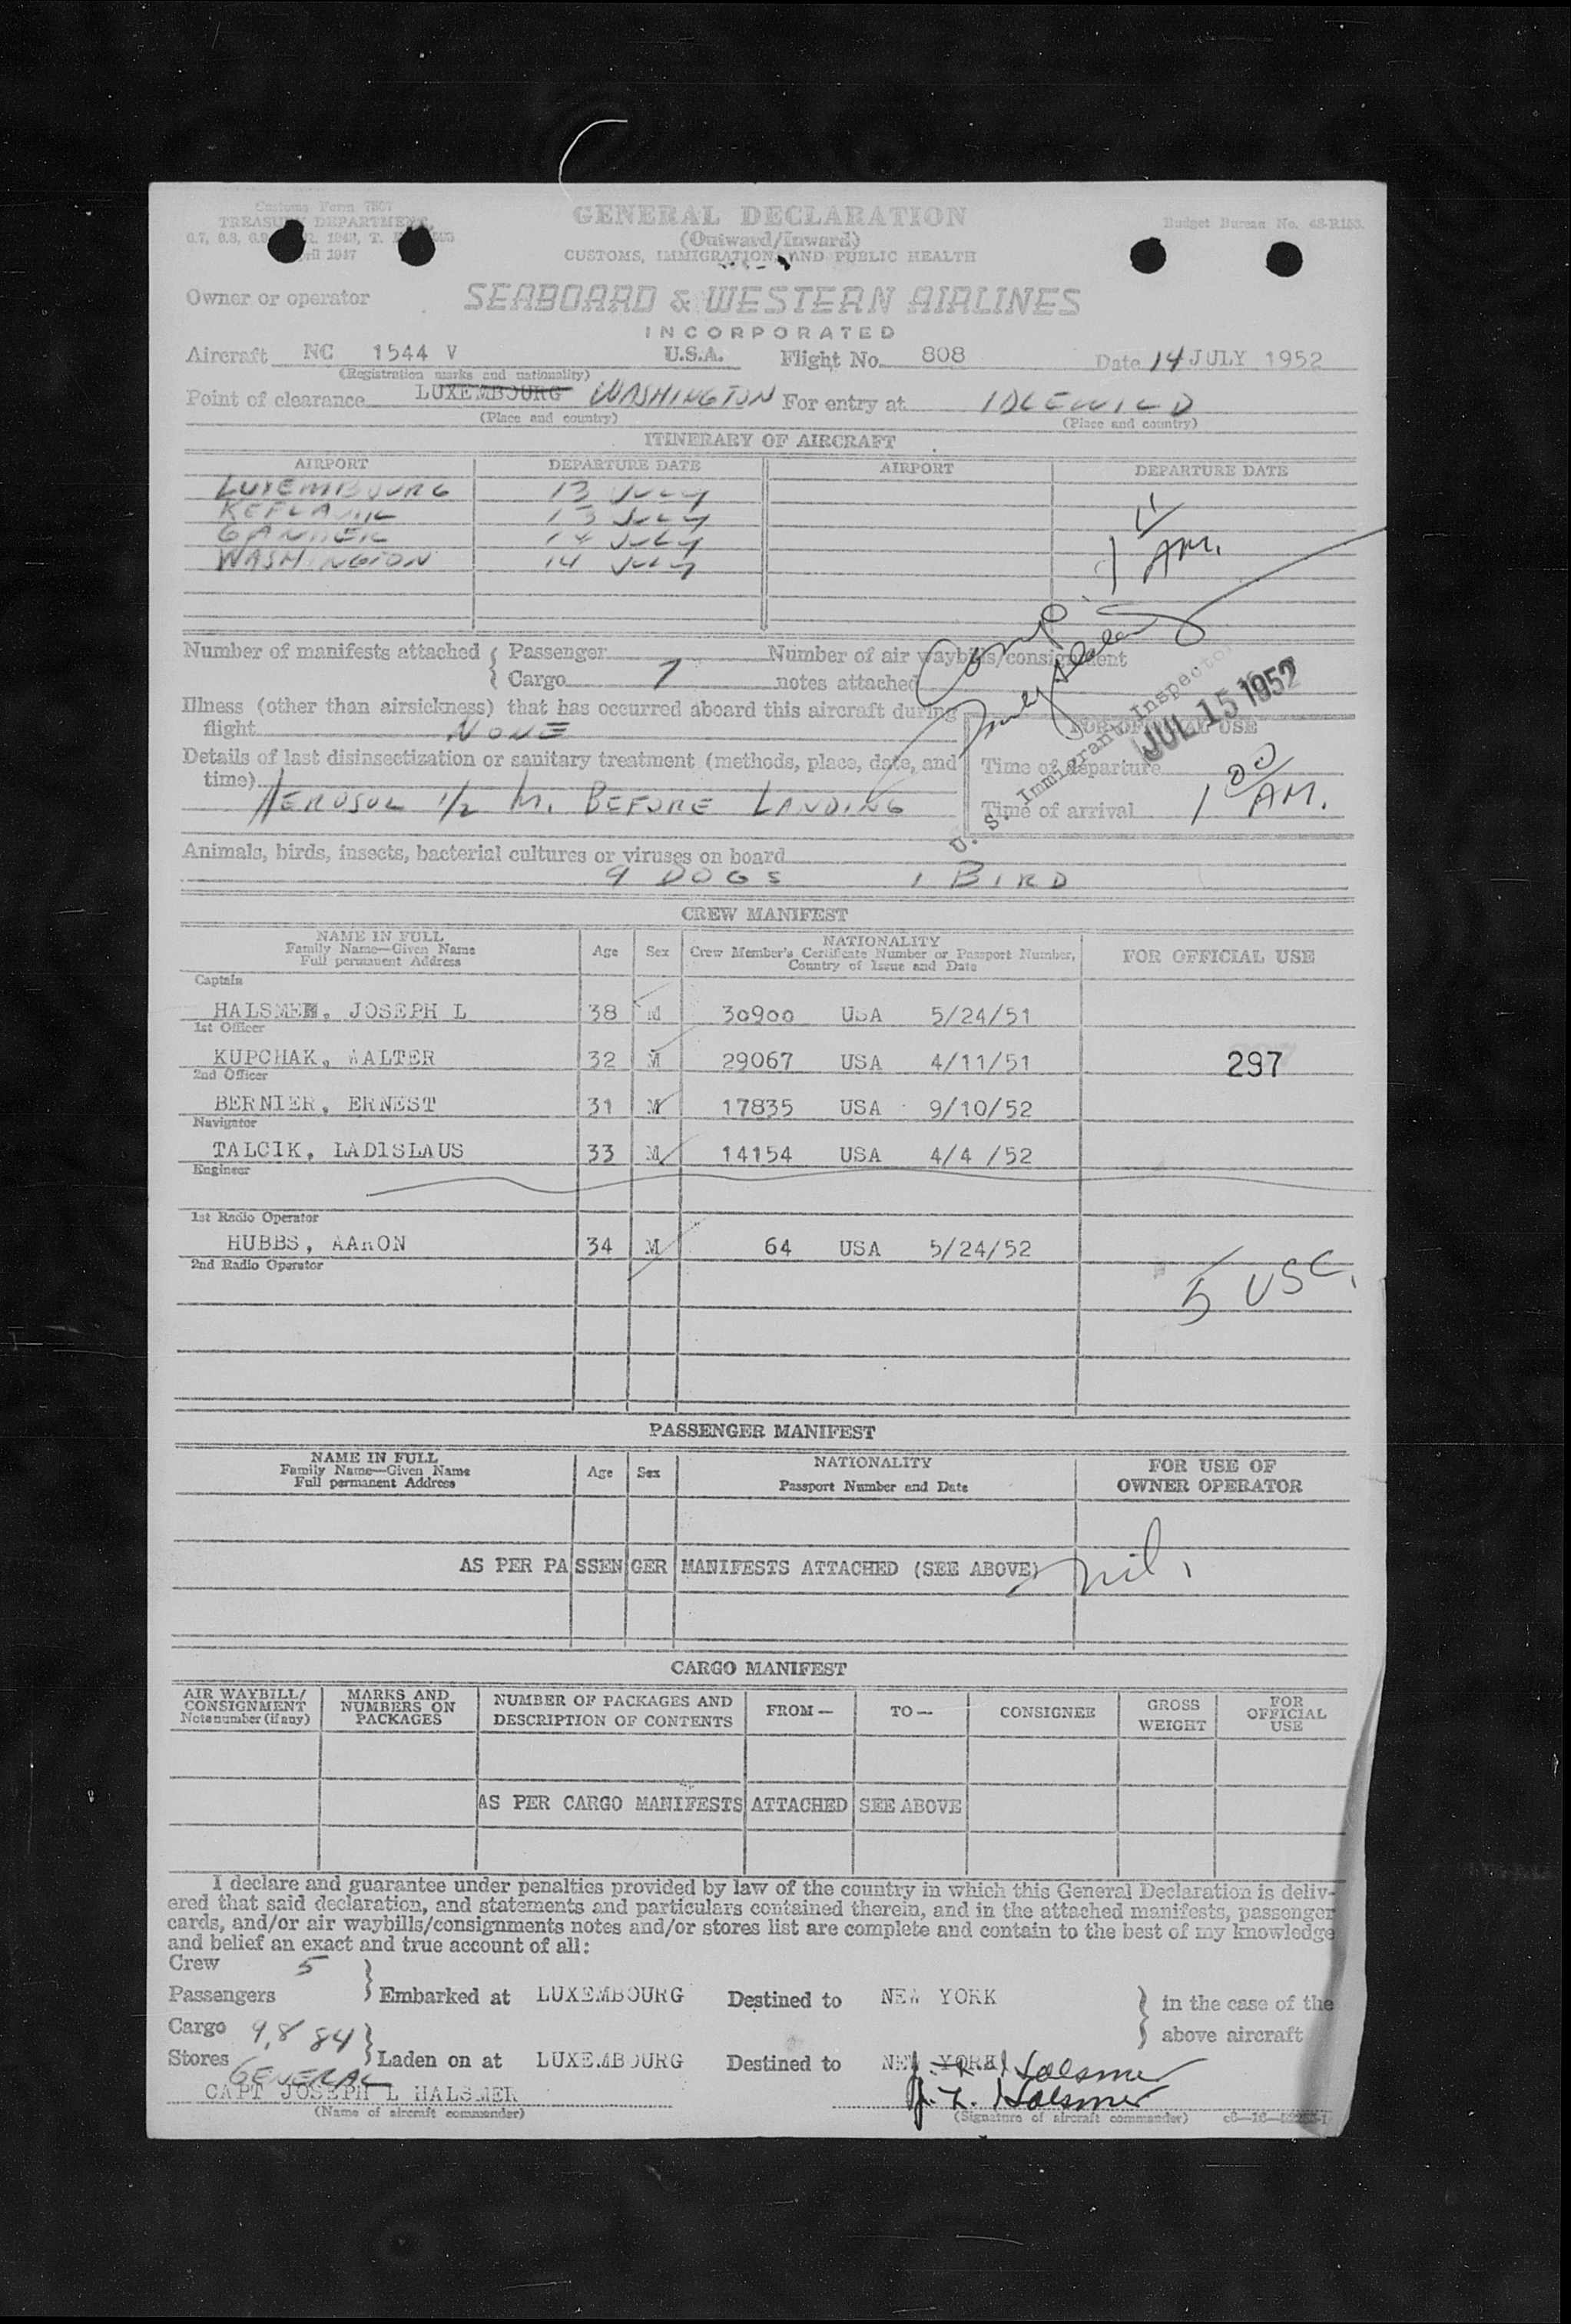 Customs Form 7507
TREASURY DEPARTMENT
April 1947
GENERAL DECLARATION
(Outward/Inward)
CUSTOMS, IMMIGRATION, AND PUBLIC HEALTH
Budget Bureau No. 48-R153.
Owner or operator SEABOARD & WESTERN AIRLINES
INCORPORATED
Aircraft NC 1544 V U.S.A. Flight No. 808 Date 14 JULY 1952
(Registration marks and nationality)
Point of clearance LUXEMBOURG WASHINGTON For entry at IDLEWILD
(Place and country) (Place and country)
ITINERARY OF AIRCRAFT
AIRPORT DEPARTURE DATE AIRPORT DEPARTURE DATE
LUXEMBOURG 13 JULY
KEFLAVIK 13 JULY
GANDER 14 JULY
WASHINGTON 14 JULY
1 AM.
Number of manifests attached { Passenger Number of air waybills/consignment
{ Cargo 1 notes attached
Comp.
Illness (other than airsickness) that has occurred aboard this aircraft during
flight NONE
U. S. Immigrant Inspector
JUL 15 1952
FOR OFFICIAL USE
Details of last disinsectization or sanitary treatment (methods, place, date, and
time) AEROSOL 1/2 H. BEFORE LANDING
Time of departure
Time of arrival 1 00 AM.
Animals, birds, insects, bacterial cultures or viruses on board
9 DOGS 1 BIRD
CREW MANIFEST
NAME IN FULL
Family Name—Given Name
Full permanent Address
Age Sex
NATIONALITY
Crew Member's Certificate Number or Passport Number,
Country of Issue and Date
FOR OFFICIAL USE
Captain
HALSMER, JOSEPH L 38 M 30900 USA 5/24/51
1st Officer
KUPCHAK, WALTER 32 M 29067 USA 4/11/51 297
2nd Officer
BERNIER, ERNEST 31 M 17835 USA 9/10/52
Navigator
TALCIK, LADISLAUS 33 M 14154 USA 4/4 /52
Engineer
1st Radio Operator
HUBBS, AARON 34 M 64 USA 5/24/52
2nd Radio Operator
5 USC.
PASSENGER MANIFEST
NAME IN FULL
Family Name—Given Name
Full permanent Address
Age Sex
NATIONALITY
Passport Number and Date
FOR USE OF
OWNER OPERATOR
AS PER PASSENGER MANIFESTS ATTACHED (SEE ABOVE) nil.
CARGO MANIFEST
AIR WAYBILL/
CONSIGNMENT
Note number (if any)
MARKS AND
NUMBERS ON
PACKAGES
NUMBER OF PACKAGES AND
DESCRIPTION OF CONTENTS
FROM—
TO—
CONSIGNEE
GROSS
WEIGHT
FOR
OFFICIAL
USE
AS PER CARGO MANIFESTS ATTACHED SEE ABOVE
I declare and guarantee under penalties provided by law of the country in which this General Declaration is deliv-
ered that said declaration, and statements and particulars contained therein, and in the attached manifests, passenger
cards, and/or air waybills/consignments notes and/or stores list are complete and contain to the best of my knowledge
and belief an exact and true account of all:
Crew 5
Passengers } Embarked at LUXEMBOURG Destined to NEW YORK } in the case of the
Cargo 9,884 } above aircraft
Stores GENERAL } Laden on at LUXEMBOURG Destined to NEW YORK
J. L. Halsmer
CAPT JOSEPH L HALSMER J. L. Halsmer
(Name of aircraft commander) (Signature of aircraft commander)